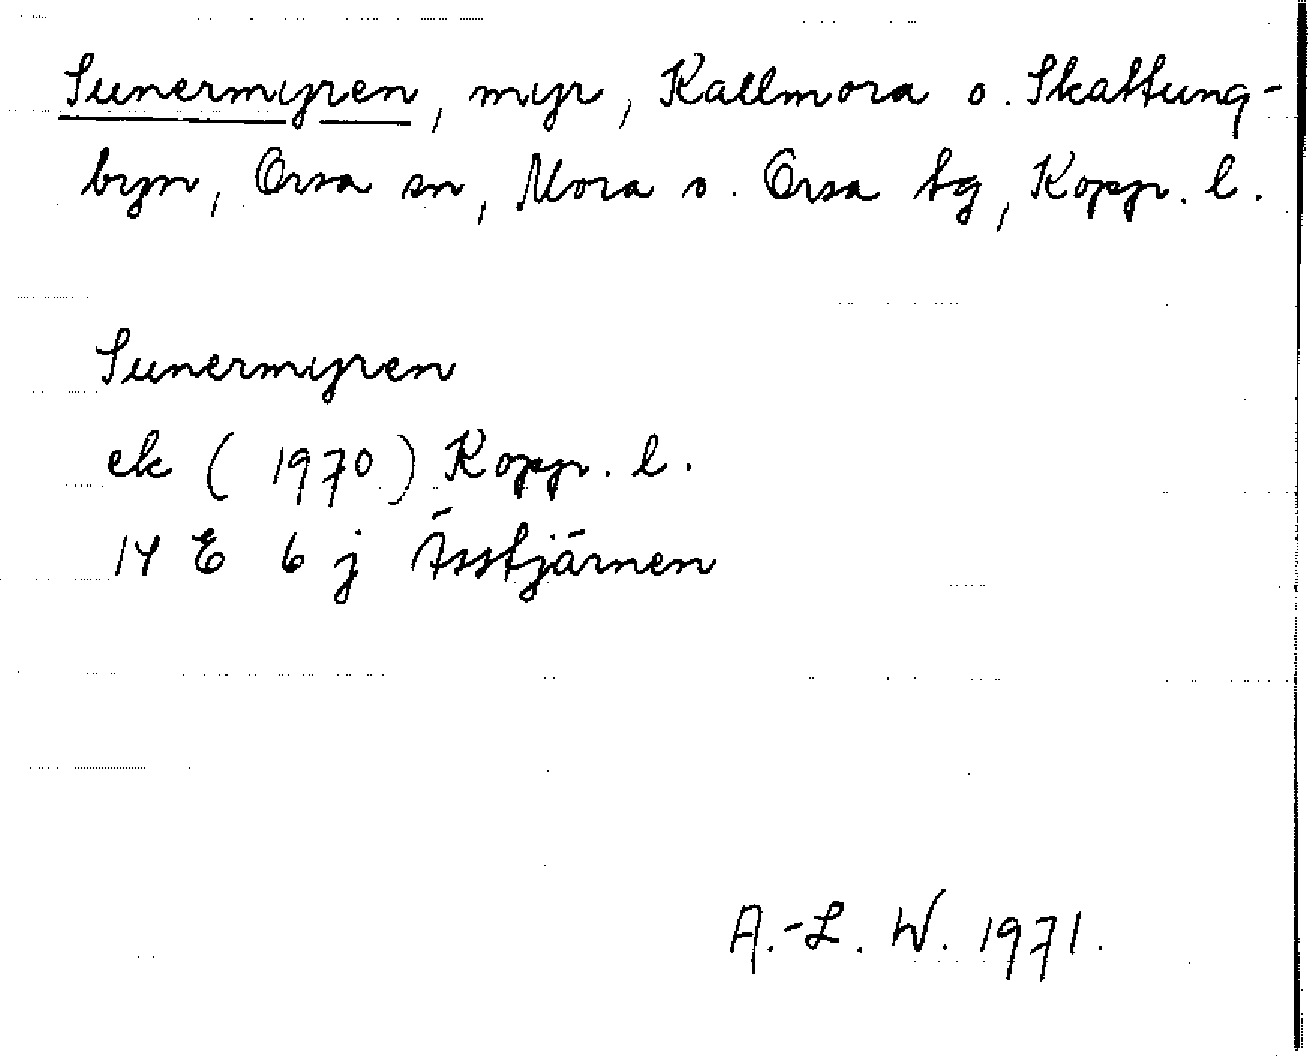 Sunermyren, myr, Kallmora o. Skattung-
byn, Orsa sn, Mora o. Orsa tg, Kopp. l.
Sunermyren
ek (1970) Kopp. l.
14 E 6 j Ässtjärnen
A.-L. W. 1971.